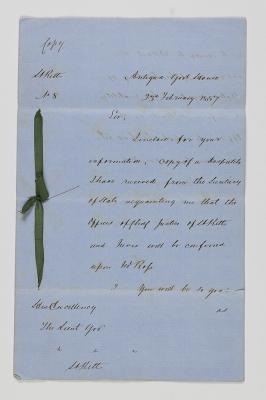 Copy
St Kitts
No 8
Antigua Govt House
2nd February 1857
Sir,
I inclose for your
information, copy of a Despatch
I have received from the Secretary
of State acquainting me that the
Office of Chief Justice of St Kitts
and Nevis will be conferred
upon
You will be so good
as
His Excellency
The Lieut Gov
St Kitts